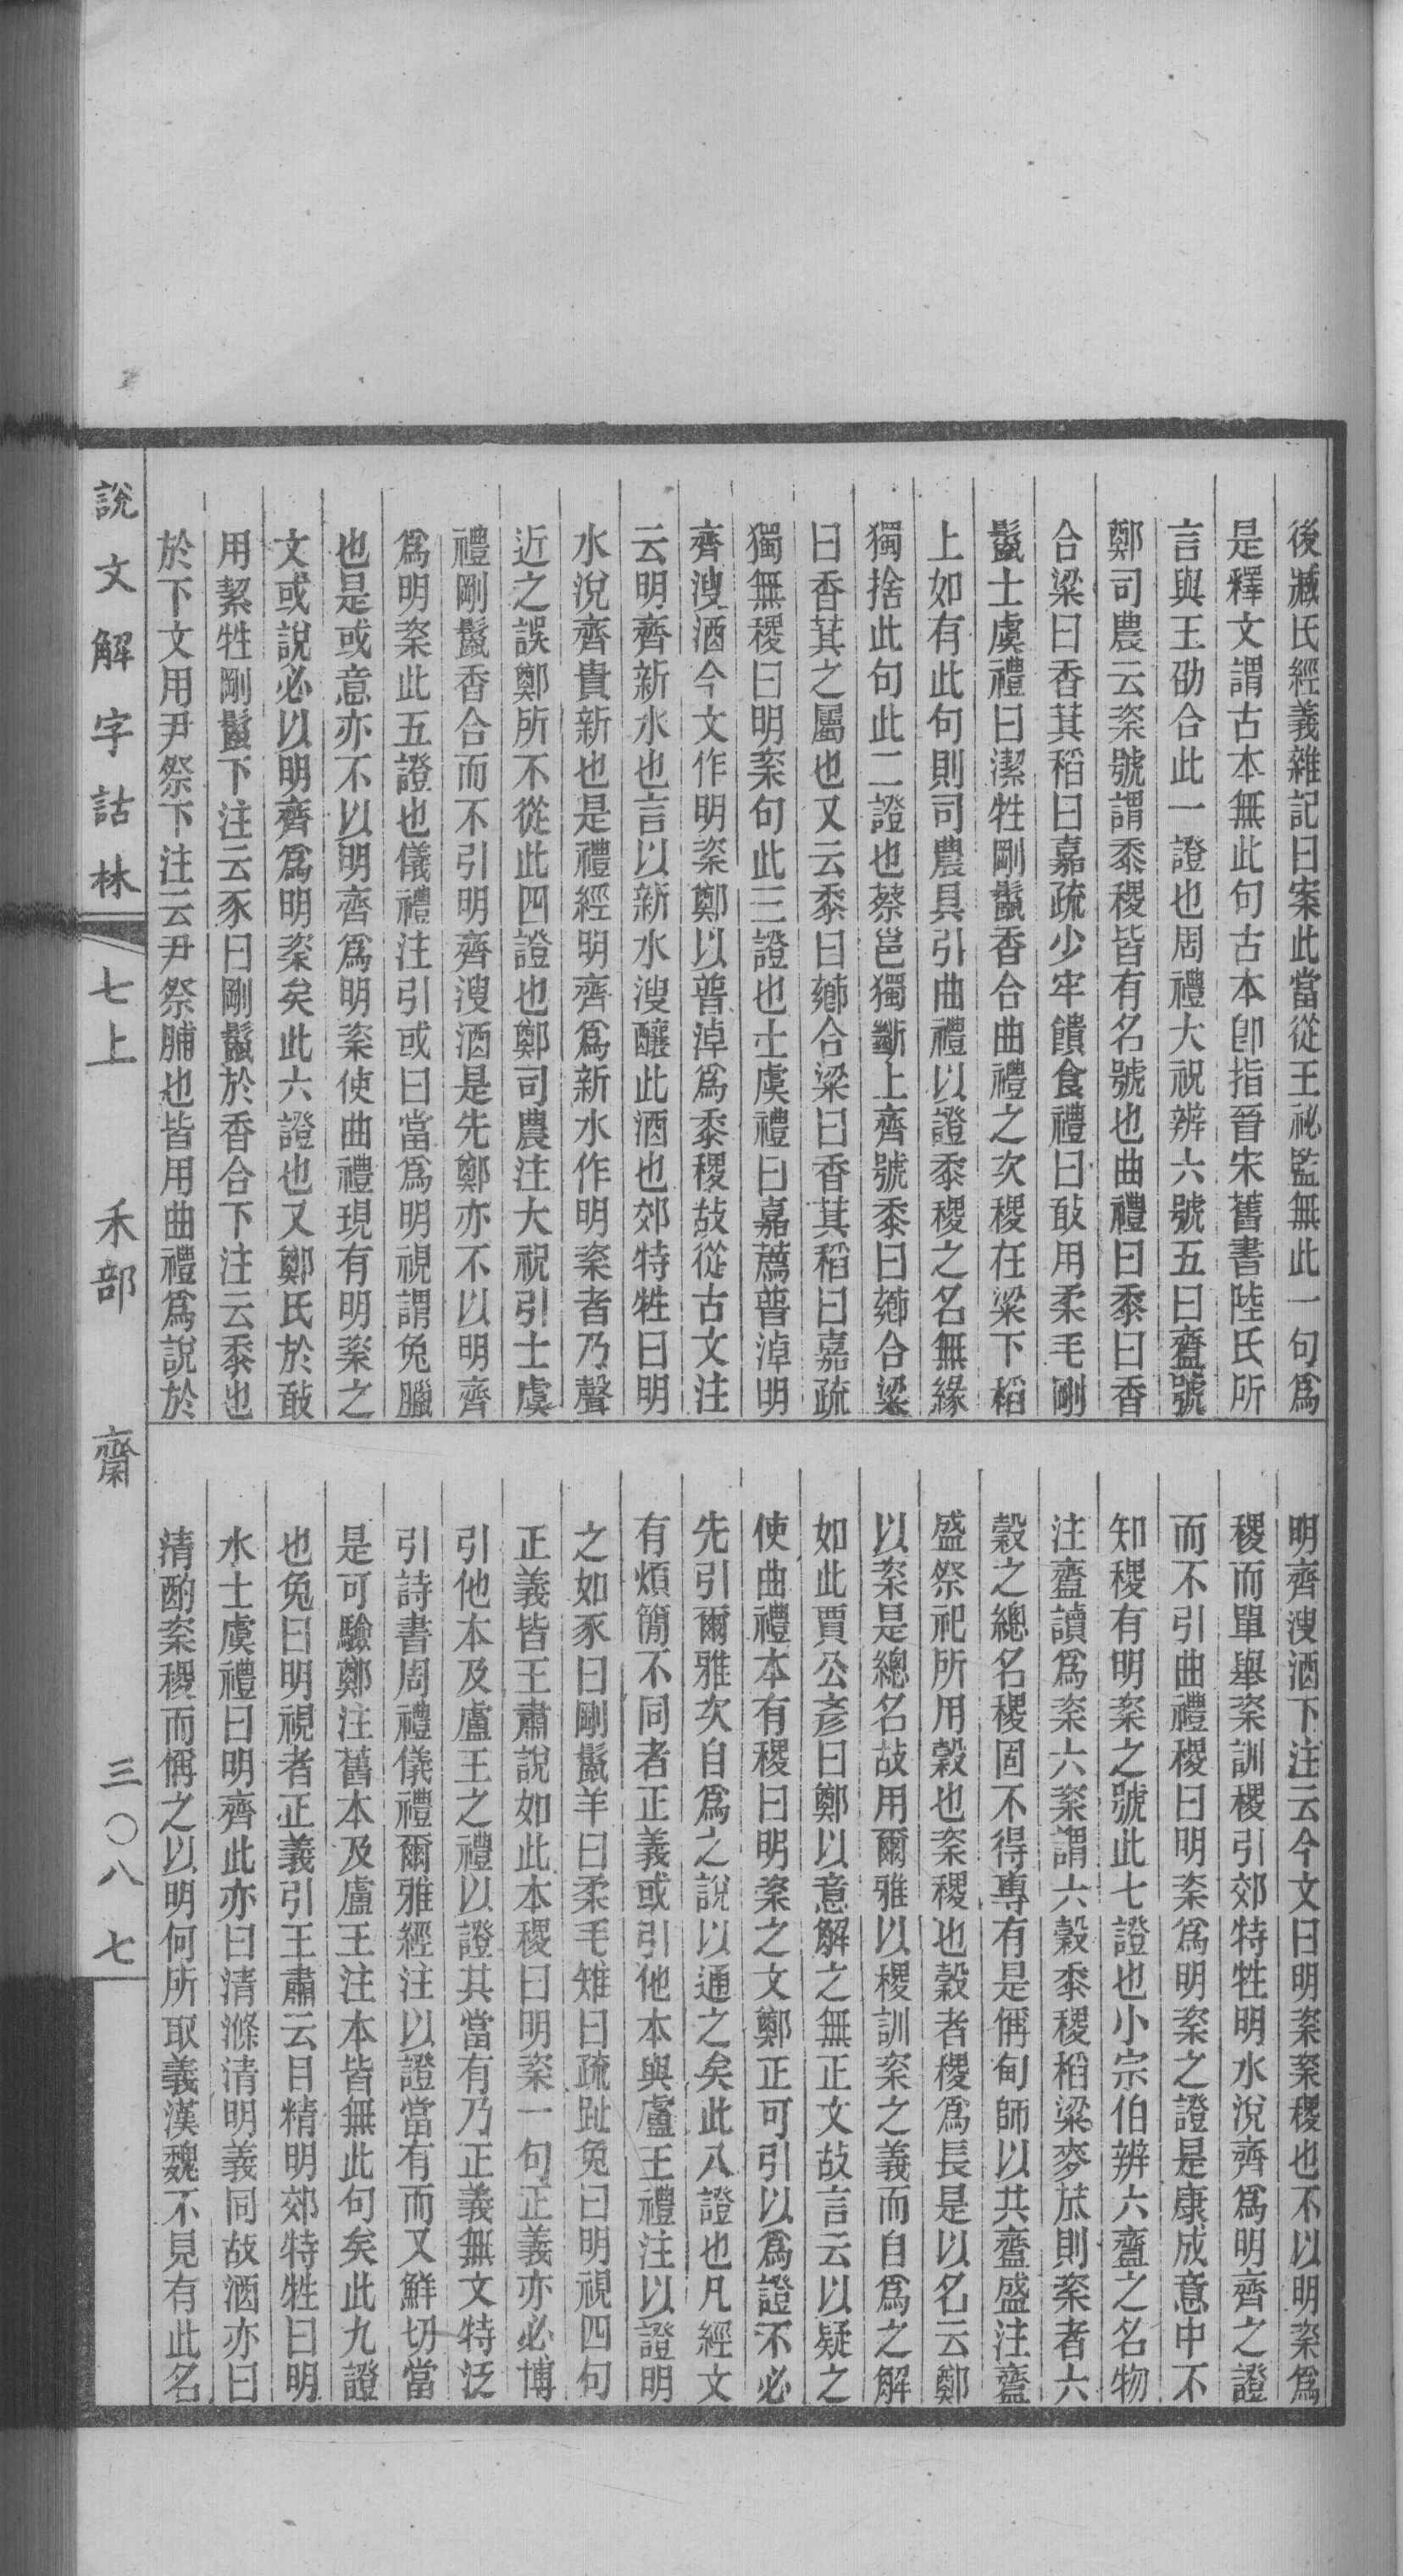 後臧氏經義雜記曰案此當從王祕監無此一句爲
是釋文謂古本無此句古本卽指晉宋舊書陸氏所
言與王劭合此一證也周禮大祝辨六號五曰齍號
鄭司農云粢號謂黍稷皆有名號也曲禮曰黍曰香
合粱曰香萁稻曰嘉疏少牢饋食禮曰敢用柔毛剛
鬣士虞禮曰潔牲剛鬣香合曲禮之次稷在粱下稻
上如有此句則司農具引曲禮以證黍稷之名無緣
獨捨此句此二證也蔡邕獨斷上齊號黍曰薌合粱
曰香萁之屬也又云黍曰薌合粱曰香萁稻曰嘉疏
獨無稷曰明粢句此三證也士虞禮曰嘉薦普淖明
齊溲酒今文作明粢鄭以普淖爲黍稷故從古文注
云明齊新水也言以新水溲釀此酒也郊特牲曰明
水涚齊貴新也是禮經明齊爲新水作明粢者乃聲
近之誤鄭所不從此四證也鄭司農注大祝引士虞
禮剛鬣香合而不引明齊溲酒是先鄭亦不以明齊
爲明粢此五證也儀禮注引或曰當爲明視謂兔臘
也是或意亦不以明齊爲明粢使曲禮現有明粢之
文或說必以明齊爲明粢矣此六證也又鄭氏於敢
用絜牲剛鬣下注云豕曰剛鬣於香合下注云黍也
於下文用尹祭下注云尹祭脯也皆用曲禮爲說於
明齊溲酒下注云今文曰明粢粢稷也不以明粢爲
稷而單舉粢訓稷引郊特牲明水涚齊爲明齊之證
而不引曲禮稷曰明粢爲明粢之證是康成意中不
知稷有明粢之號此七證也小宗伯辨六齍之名物
注齍讀爲粢六粢謂六穀黍稷稻粱麥苽則粢者六
穀之總名稷固不得專有是偁甸師以共齍盛注齍
盛祭祀所用穀也粢稷也穀者稷爲長是以名云鄭
以粢是總名故用爾雅以稷訓粢之義而自爲之解
如此賈公彥曰鄭以意解之無正文故言云以疑之
使曲禮本有稷曰明粢之文鄭正可引以爲證不必
先引爾雅次自爲之說以通之矣此八證也凡經文
有煩簡不同者正義或引他本與盧王禮注以證明
之如豕曰剛鬣羊曰柔毛雉曰疏趾兔曰明視四句
正義皆王肅說如此本稷曰明粢一句正義亦必博
引他本及盧王之禮以證其當有乃正義無文特泛
引詩書周禮儀禮爾雅經注以證當有而又鮮切當
是可驗鄭注舊本及盧王注本皆無此句矣此九證
也兔曰明視者正義引王肅云目精明郊特牲曰明
水士虞禮曰明齊此亦曰清滌清明義同故酒亦曰
清酌粢稷而偁之以明何所取義漢魏不見有此名
說文解字詁林 七上 禾部 齋 三〇八七